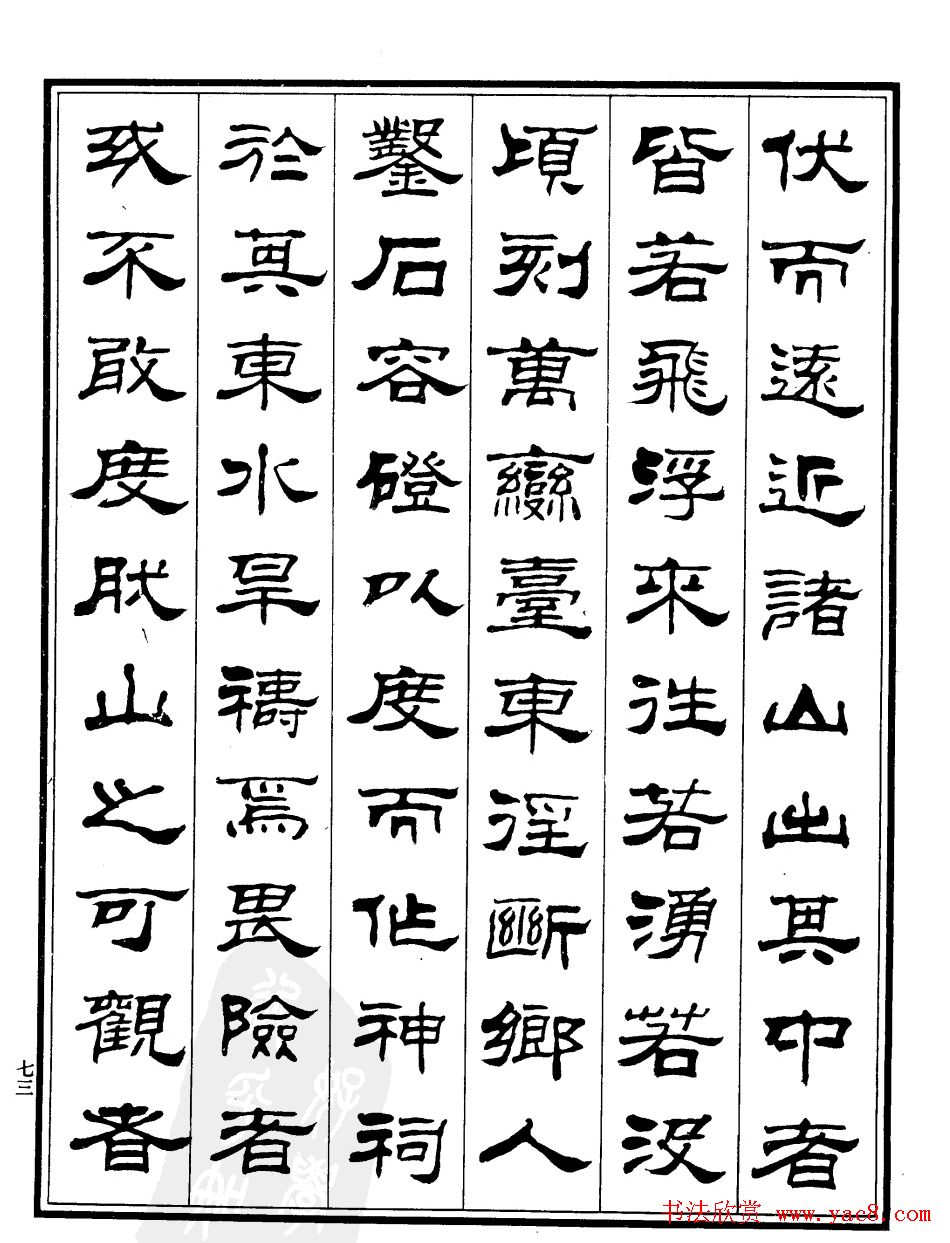 伏而遠近諸山出其中者
皆若飛浮來往若湧若没
頃刻萬變臺東徑斷鄉人
鑿石容磴以度而作神祠
於其東水旱禱焉畏險者
或不敢度然山之可觀者
七三
书法欣赏 www.yac8.com